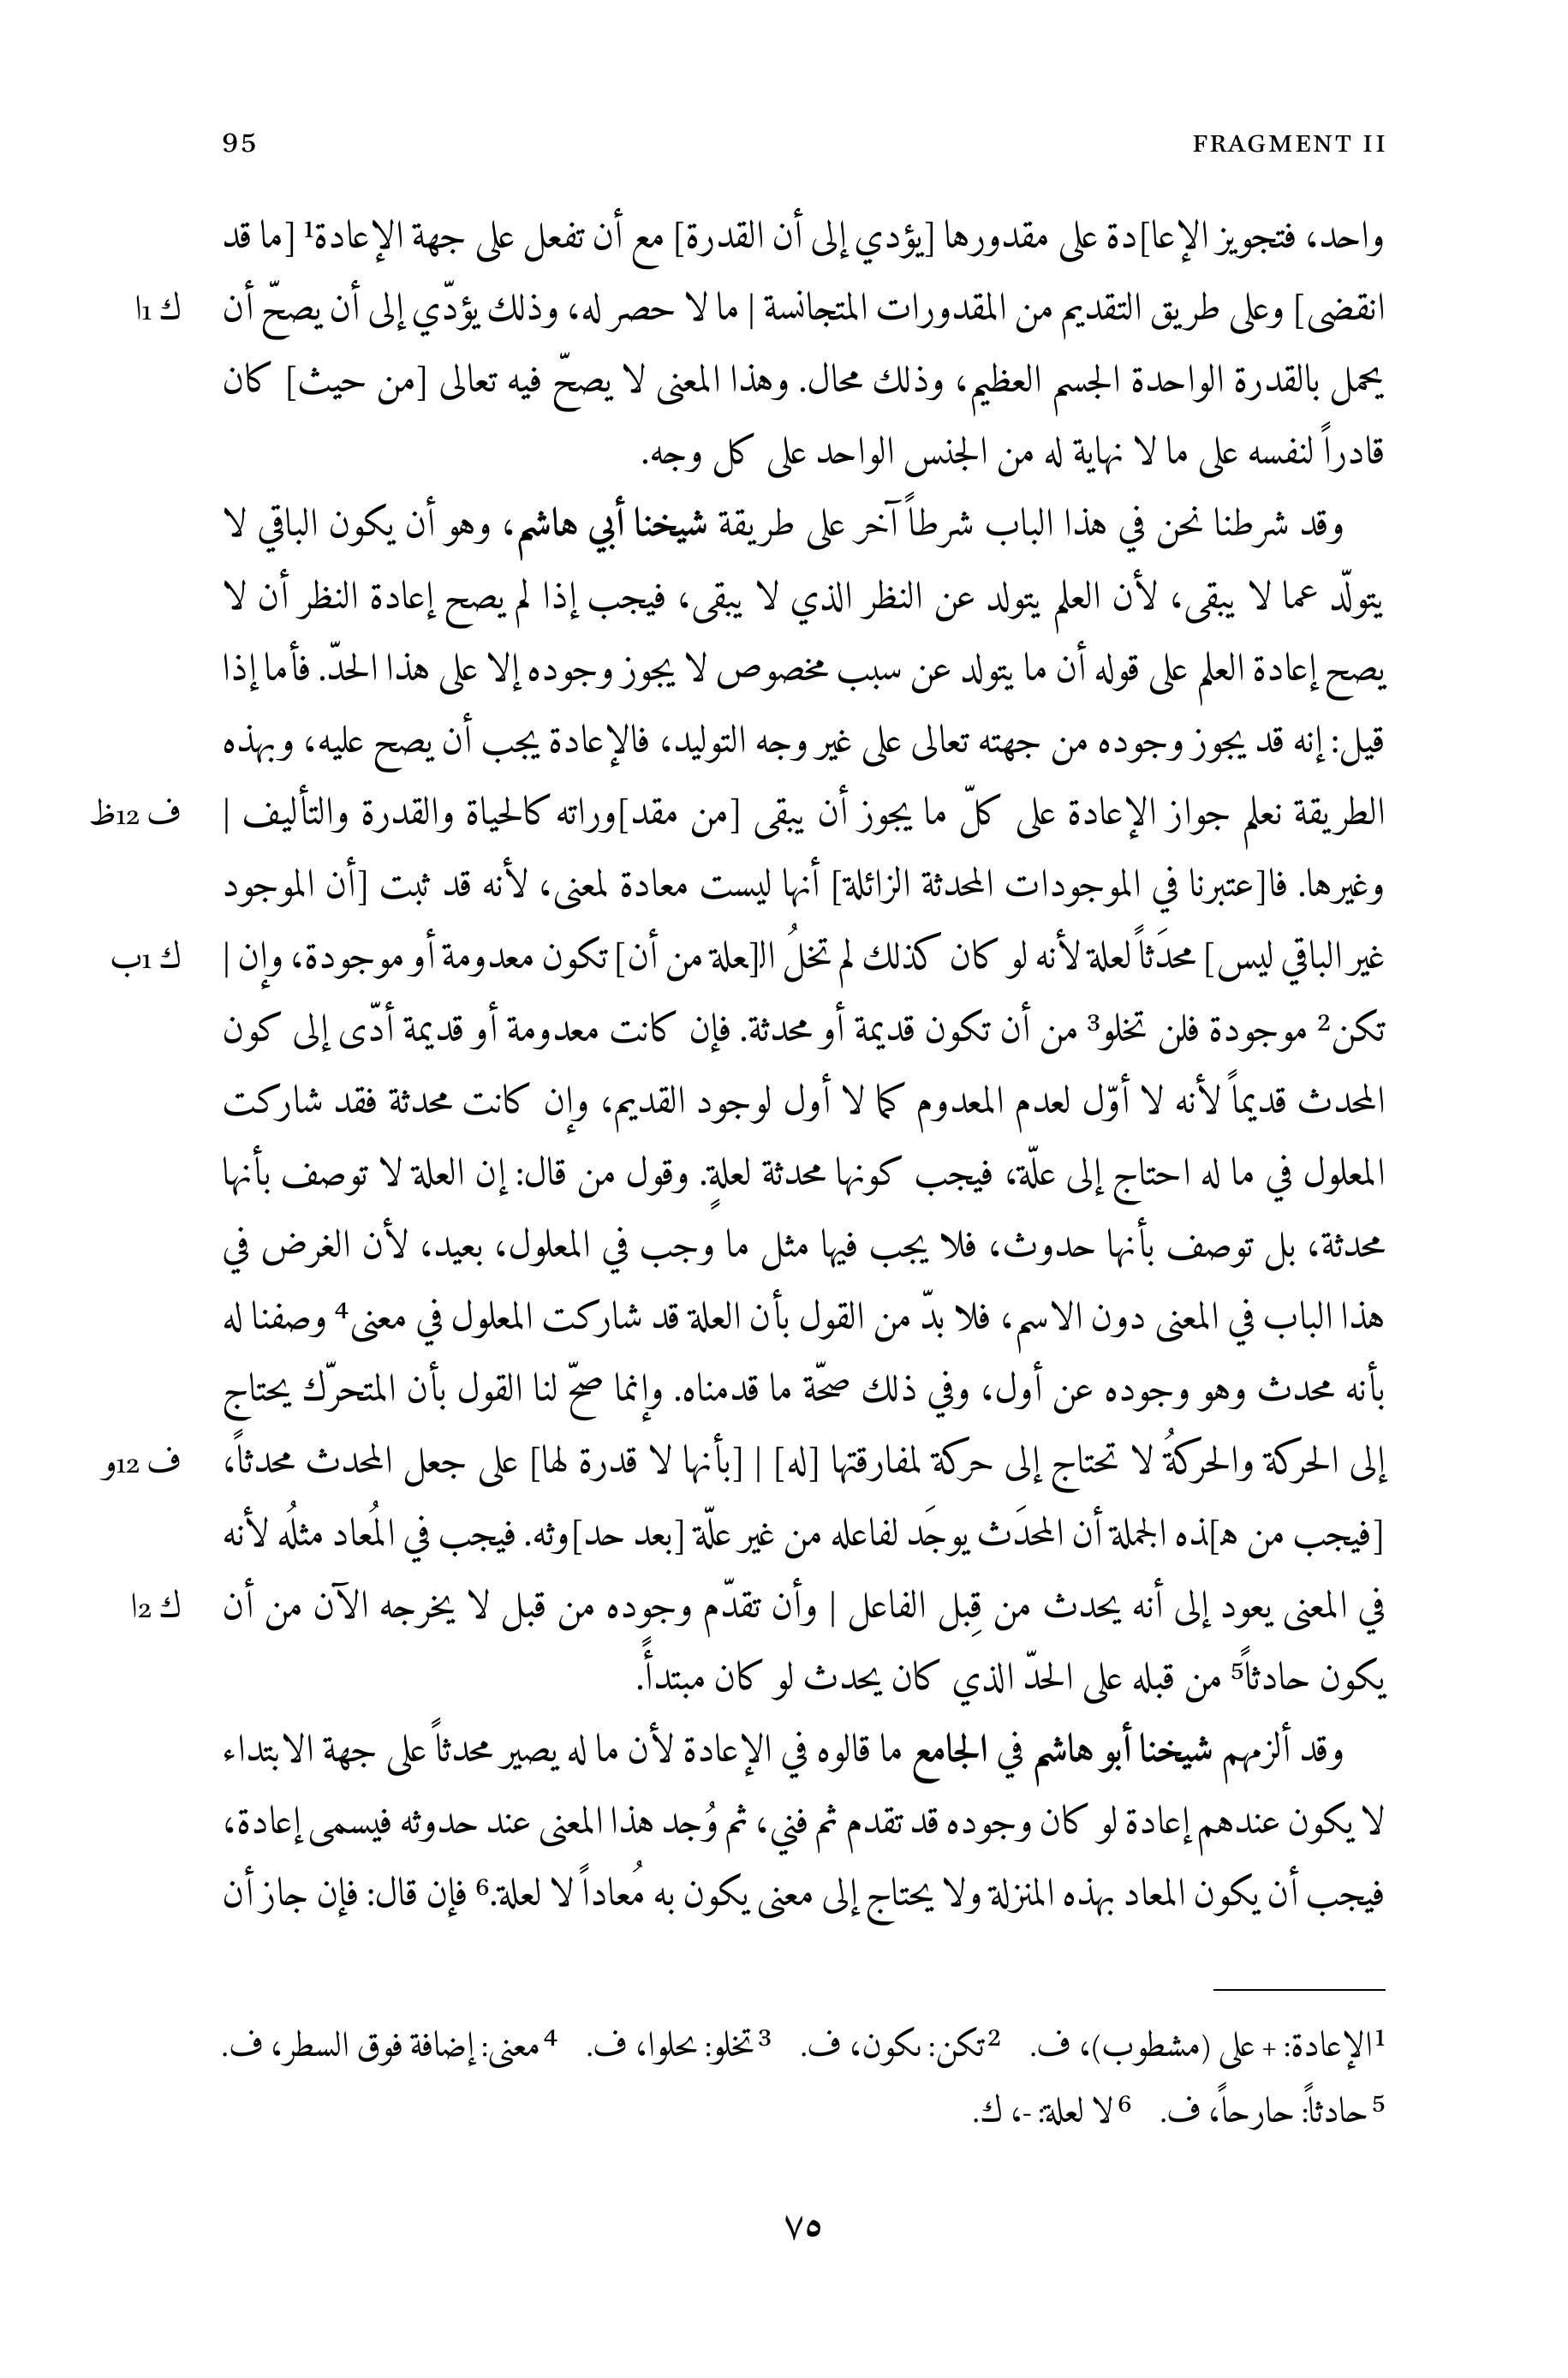 95 FRAGMENT II
واحد، فتجويز الإعا]دة على مقدورها [يؤدي إلى أن القدرة] مع أن تفعل على جهة الإعادة1 [ما قد
انقضى] وعلى طريق التقديم من المقدورات المتجانسة | ما لا حصر له، وذلك يؤدّي إلى أن يصحّ أن ك 1ا
يحمل بالقدرة الواحدة الجسم العظيم، وذلك محال. وهذا المعنى لا يصحّ فيه تعالى [من حيث] كان
قادراً لنفسه على ما لا نهاية له من الجنس الواحد على كل وجه.
وقد شرطنا نحن في هذا الباب شرطاً آخر على طريقة شيخنا أبي هاشم، وهو أن يكون الباقي لا
يتولّد عما لا يبقى، لأن العلم يتولد عن النظر الذي لا يبقى، فيجب إذا لم يصح إعادة النظر أن لا
يصح إعادة العلم على قوله أن ما يتولد عن سبب مخصوص لا يجوز وجوده إلا على هذا الحدّ. فأما إذا
قيل: إنه قد يجوز وجوده من جهته تعالى على غير وجه التوليد، فالإعادة يجب أن يصح عليه، وبهذه
الطريقة نعلم جواز الإعادة على كلّ ما يجوز أن يبقى [من مقد]وراته كالحياة والقدرة والتأليف | ف 12ظ
وغيرها. فا[عتبرنا في الموجودات المحدثة الزائلة] أنها ليست معادة لمعنى، لأنه قد ثبت [أن الموجود
غير الباقي ليس] محدَثاً لعلة لأنه لو كان كذلك لم تخلُ ال[علة من أن] تكون معدومة أو موجودة، وإن | ك 1ب
تكن2 موجودة فلن تخلو3 من أن تكون قديمة أو محدثة. فإن كانت معدومة أو قديمة أدّى إلى كون
المحدث قديماً لأنه لا أوّل لعدم المعدوم كما لا أول لوجود القديم، وإن كانت محدثة فقد شاركت
المعلول في ما له احتاج إلى علّة، فيجب كونها محدثة لعلةٍ. وقول من قال: إن العلة لا توصف بأنها
محدثة، بل توصف بأنها حدوث، فلا يجب فيها مثل ما وجب في المعلول، بعيد، لأن الغرض في
هذا الباب في المعنى دون الاسم، فلا بدّ من القول بأن العلة قد شاركت المعلول في معنى4 وصفنا له
بأنه محدث وهو وجوده عن أول، وفي ذلك صحّة ما قدمناه. وإنما صحّ لنا القول بأن المتحرّك يحتاج
إلى الحركة والحركةُ لا تحتاج إلى حركة لمفارقتها [له] | [بأنها لا قدرة لها] على جعل المحدث محدثاً، ف 12و
[فيجب من ه]ذه الجملة أن المحدَث يوجَد لفاعله من غير علّة [بعد حد]وثه. فيجب في المُعاد مثلُه لأنه
في المعنى يعود إلى أنه يحدث من قِبل الفاعل | وأن تقدّم وجوده من قبل لا يخرجه الآن من أن ك 2ا
يكون حادثاً5 من قبله على الحدّ الذي كان يحدث لو كان مبتدأً.
وقد ألزمهم شيخنا أبو هاشم في الجامع ما قالوه في الإعادة لأن ما له يصير محدثاً على جهة الابتداء
لا يكون عندهم إعادة لو كان وجوده قد تقدم ثم فني، ثم وُجد هذا المعنى عند حدوثه فيسمى إعادة،
فيجب أن يكون المعاد بهذه المنزلة ولا يحتاج إلى معنى يكون به مُعاداً لا لعلة.6 فإن قال: فإن جاز أن
1 الإعادة: + على (مشطوب)، ف. 2 تكن: ٮكون، ف. 3 تخلو: ٮحلوا، ف. 4 معنى: إضافة فوق السطر، ف.
5 حادثاً: حارحاً، ف. 6 لا لعلة: -، ك.
٧٥